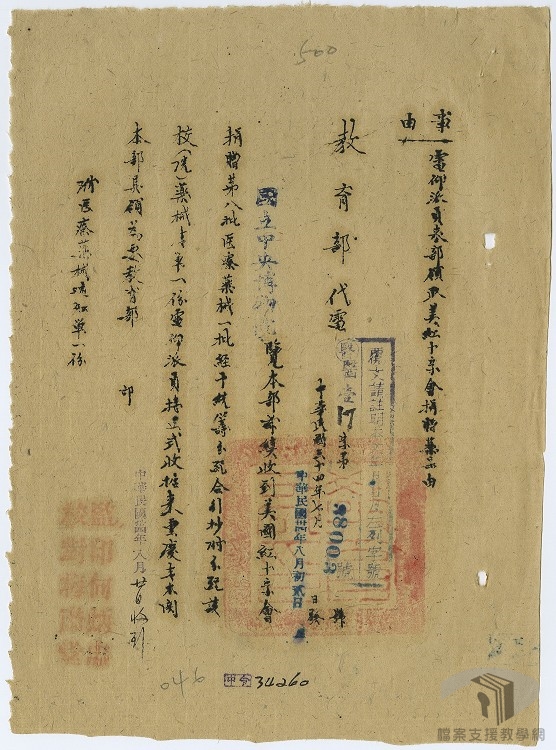 500
事由
電仰派員來部領取美紅十字會捐贈藥品由
教育部代電
覆文請註明
醫壹17字第38003號
中華民國三十四年七月 日發
中華民國卅四年八月初貳日
國立中央博物院覽本部茲續收到美國紅十字會
捐贈第八批医療藥械一批經予統籌分配合行抄附分配該
校(院)藥械清單一份電仰派員持正式收據來重慶青木関
本部具領為要教育部 印
附医療藥械清單一份
中華民國卅四年八月廿日收到
監印
校對
046
34260
檔案支援教學網